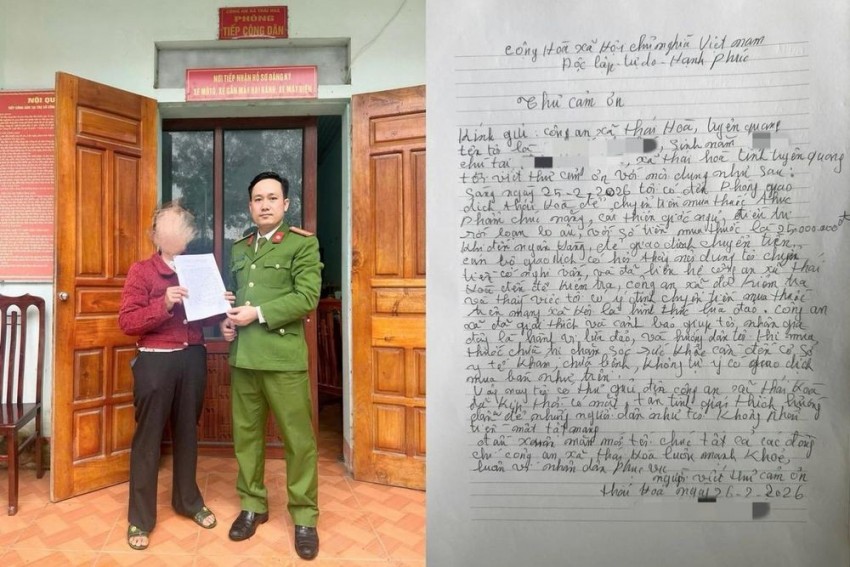 CÔNG AN XÃ THÁI HOÀ
PHÒNG
TIẾP CÔNG DÂN
NƠI TIẾP NHẬN HỒ SƠ ĐĂNG KÝ
XE MÔTÔ, XE GẮN MÁY HAI BÁNH, XE MÁY ĐIỆN
NỘI QUY
Cộng Hoà xã Hội chủ nghĩa Việt nam
Độc lập - Tự do - Hạnh Phúc
Thư cảm ơn
Kính gửi: công an xã Thái Hoà, tuyên quang
tên tôi là , Sinh năm
chú tại , xã Thái hoà tỉnh tuyên quang
tôi viết thư cảm ơn với nội dung như sau:
Sáng ngày 25-2-2026 tôi có đến Phòng giao
dịch thái Hoà để chuyển tiền mua thuốc thực
Phẩm chức năng, cải thiện giấc ngủ, điều trị
rối loạn lo âu, với số tiền mua thuốc là 25,000.000đ
khi đến ngân hàng để giao dịch chuyển tiền,
cán bộ giao dịch có hỏi thấy nội dung tôi chuyển
tiền có nghi vấn, và đã liên hệ công an xã Thái
Hoà đến để kiểm tra, công an xã đã kiểm tra
và thấy việc tôi có ý định chuyển tiền mua thuốc
trên mạng xã hội là hình thức lừa đảo. công an
xã đã giải thích và cảnh báo giúp tôi, nhận
đây là hành vi lừa đảo, và hướng dẫn tôi khi mua
thuốc chữa bệnh chăm sóc sức khoẻ cần đến cơ sở
y tế khám, chữa bệnh, không tự ý có giao dịch
mua bán như trên.
Vì vậy tôi có thư gửi đến công an xã Thái Hoà
đã kịp thời có mặt, tận tình giải thích hướng
dẫn để những người dân như tôi không
tiền mất tật mang
đầu xuân năm mới tôi chúc tất cả các đồng
chí công an, xã Thái Hoà luôn mạnh khoẻ,
luôn vì nhân dân phục vụ
người viết thư cảm ơn
Thái Hoà ngày 25-2-2026